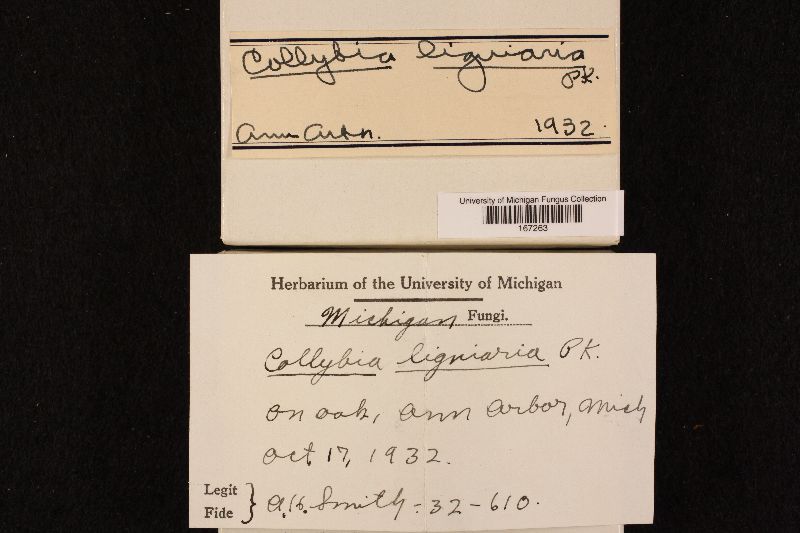 Collybia ligniaria
Pk.
Ann Arbor. 1932.
University of Michigan Fungus Collection
167263
Herbarium of the University of Michigan
Michigan Fungi.
Collybia ligniaria Pk.
on oak, Ann Arbor, Mich
Oct. 17, 1932.
Legit
Fide } A.H. Smith - 32-610.